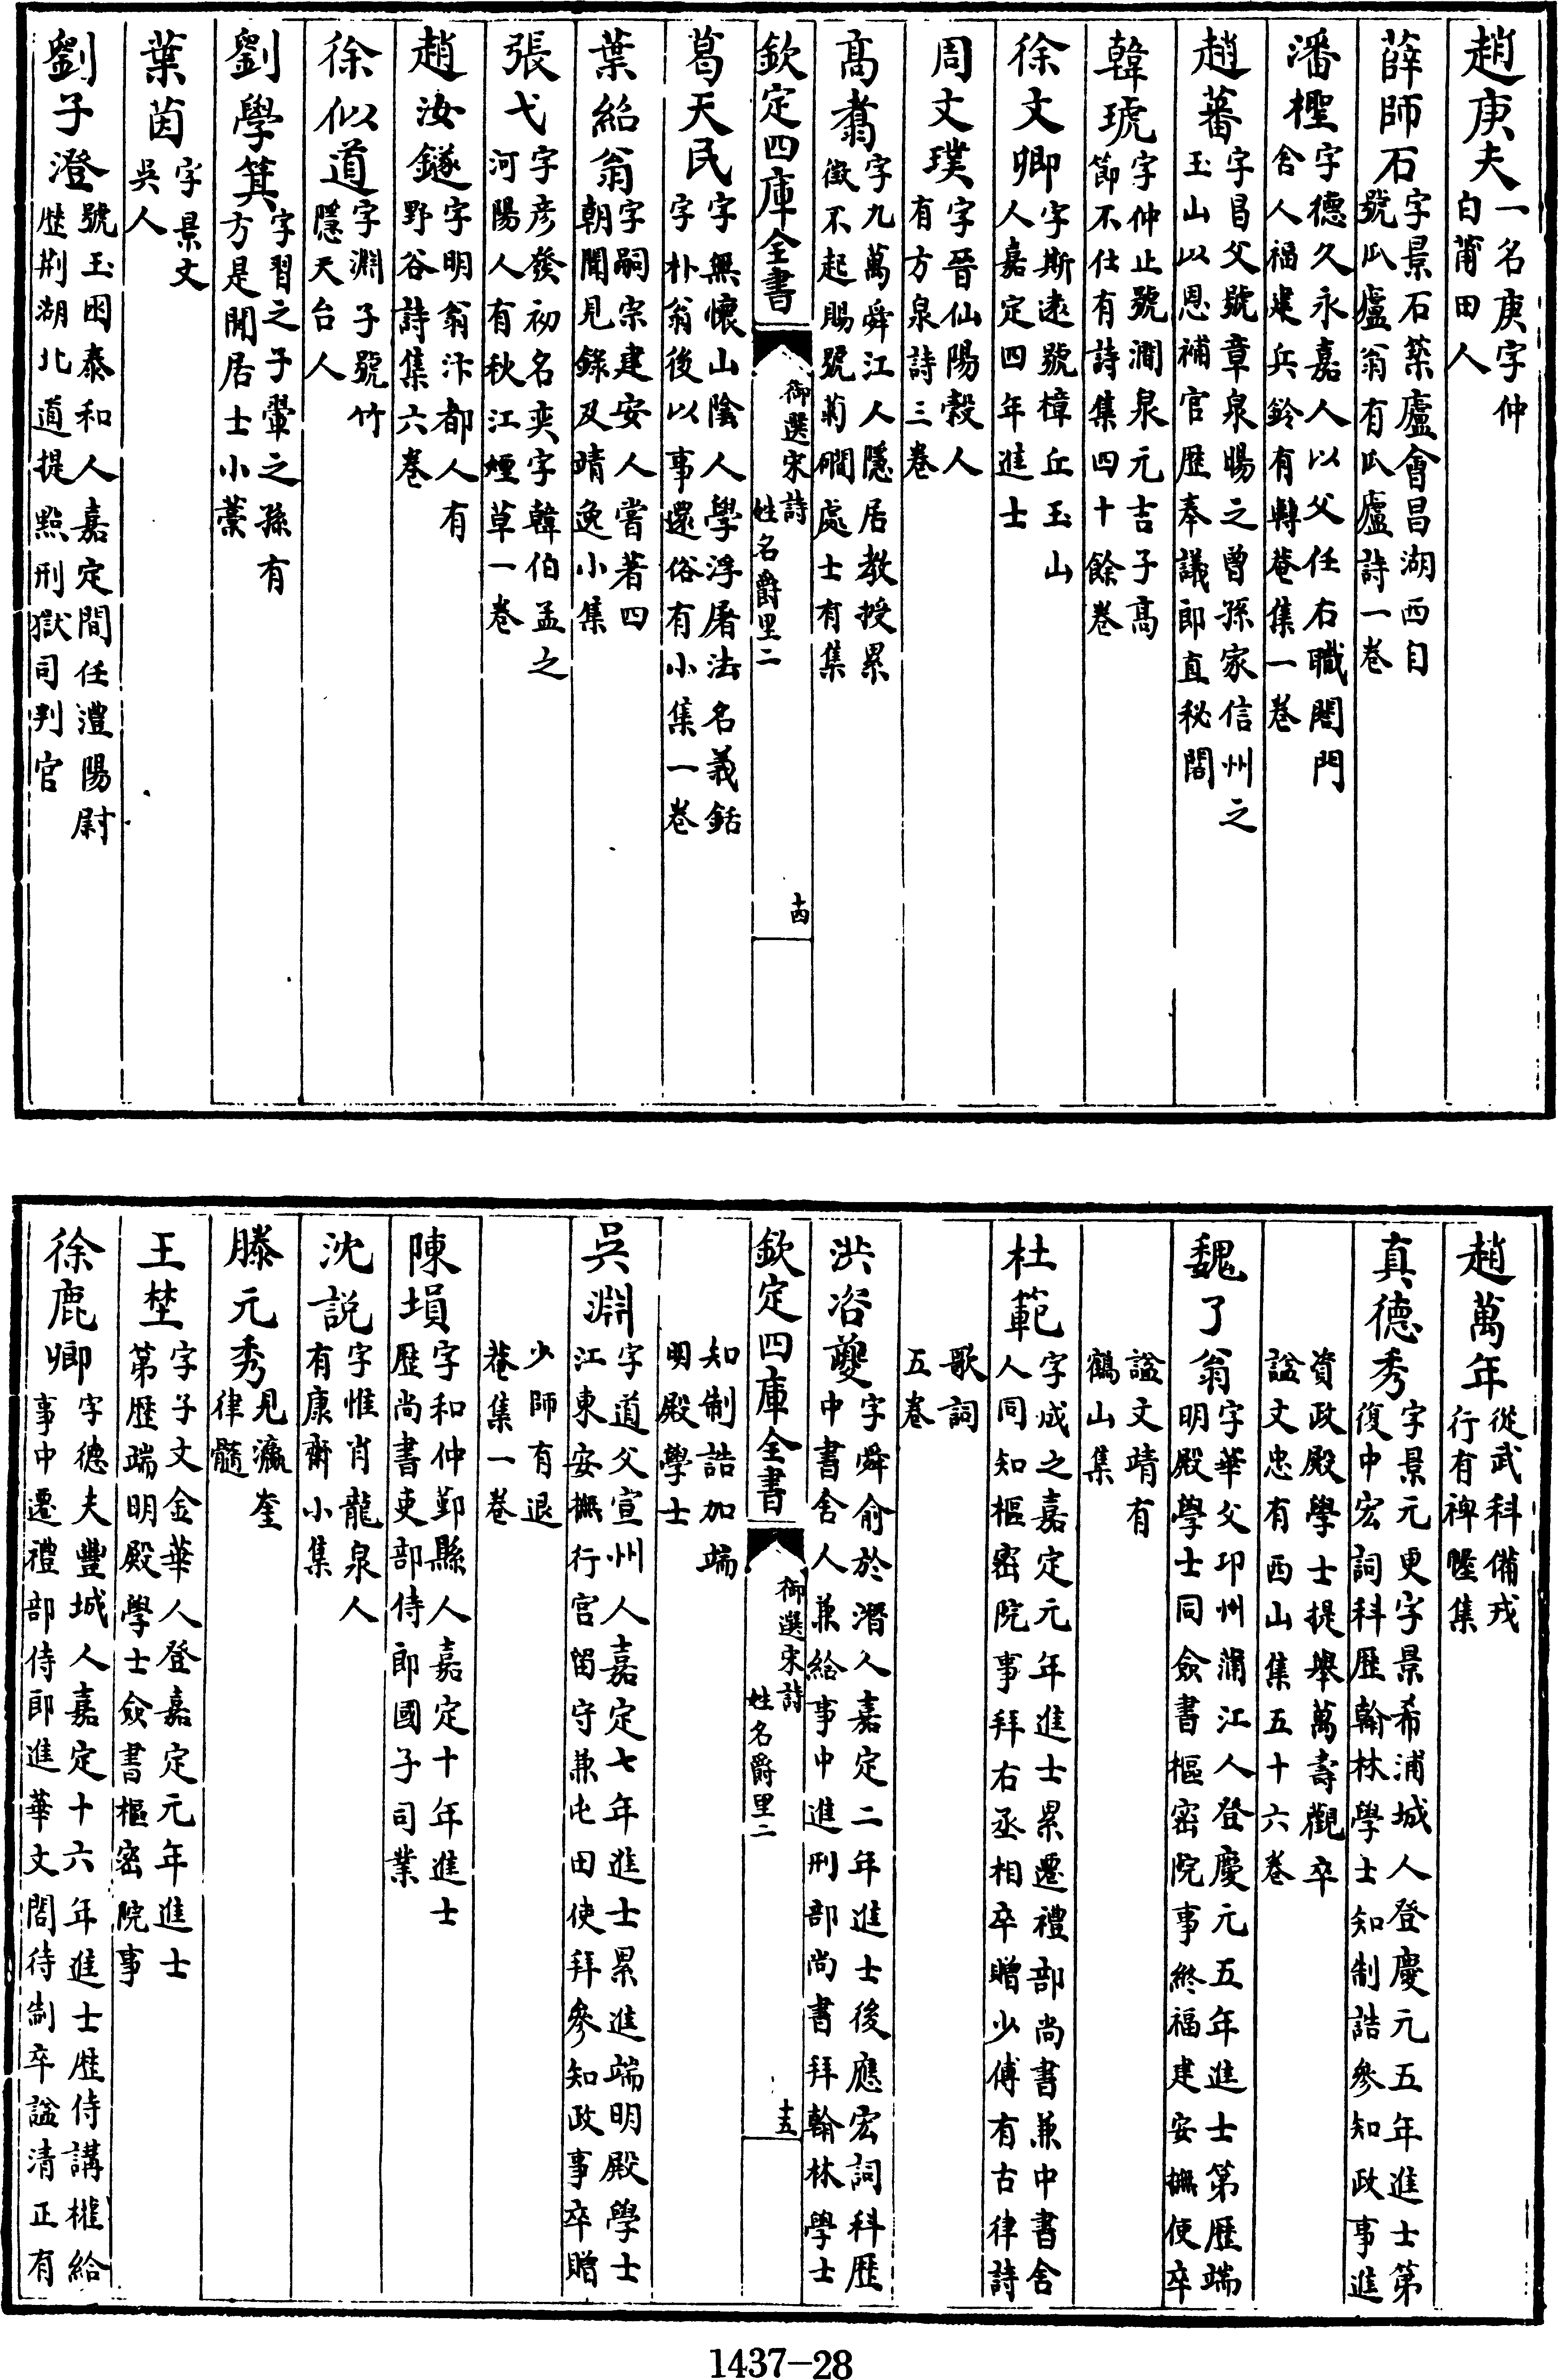 趙庚夫一名庚字仲
白莆田人
薛師石字景石築廬會昌湖西自
號瓜廬翁有瓜廬詩一卷
潘檉字德久永嘉人以父任右職閤門
舍人福建兵鈐有轉菴集一卷
趙蕃字昌父號章泉暘之曾孫家信州之
玉山以恩補官歷奉議郎直秘閣
韓琥字仲止號澗泉元吉子高
節不仕有詩集四十餘卷
徐文卿字斯遠號樟丘玉山
人嘉定四年進士
周文璞字晉仙陽穀人
有方泉詩三卷
高翥字九萬舜江人隱居教授累
徵不起賜號菊磵處士有集
欽定四庫全書
御選宋詩
姓名爵里二
十四
葛天民字無懷山陰人學浮屠法名義銛
字朴翁後以事還俗有小集一卷
葉紹翁字嗣宗建安人嘗著四
朝聞見錄及晴逸小集
張弋字彥發初名奕字韓伯孟之
河陽人有秋江煙草一卷
趙汝鐩字明翁汴都人有
野谷詩集六卷
徐似道字淵子號竹
隱天台人
劉學箕字習之子翬之孫有
方是閒居士小藁
葉茵字景文
吳人
劉子澄號玉囷泰和人嘉定間任澧陽尉
歷荆湖北道提㸃刑獄司判官
趙萬年從武科備戎
行有裨幄集
真德秀字景元更字景希浦城人登慶元五年進士第
復中宏詞科歷翰林學士知制誥參知政事進
資政殿學士提舉萬壽觀卒
諡文忠有西山集五十六卷
魏了翁字華父卭州蒲江人登慶元五年進士第歷端
明殿學士同僉書樞密院事終福建安撫使卒
諡文靖有
鶴山集
杜範字成之嘉定元年進士累遷禮部尚書兼中書舍
人同知樞密院事拜右丞相卒贈少傅有古律詩
歌詞
五卷
洪咨夔字舜俞於潛人嘉定二年進士後應宏詞科歷
中書舍人兼給事中進刑部尚書拜翰林學士
欽定四庫全書
御選宋詩
姓名爵里二
十五
知制誥加端
明殿學士
吳淵字道父宣州人嘉定七年進士累進端明殿學士
江東安撫行宮留守兼屯田使拜參知政事卒贈
少師有退
菴集一卷
陳塤字和仲鄞縣人嘉定十年進士
歷尚書吏部侍郎國子司業
沈說字惟肖龍泉人
有康齋小集
滕元秀見瀛奎
律髓
王埜字子文金華人登嘉定元年進士
第歷端明殿學士僉書樞密院事
徐鹿卿字德夫豐城人嘉定十六年進士歷侍講權給
事中遷禮部侍郎進華文閣待制卒諡清正有
1437-28